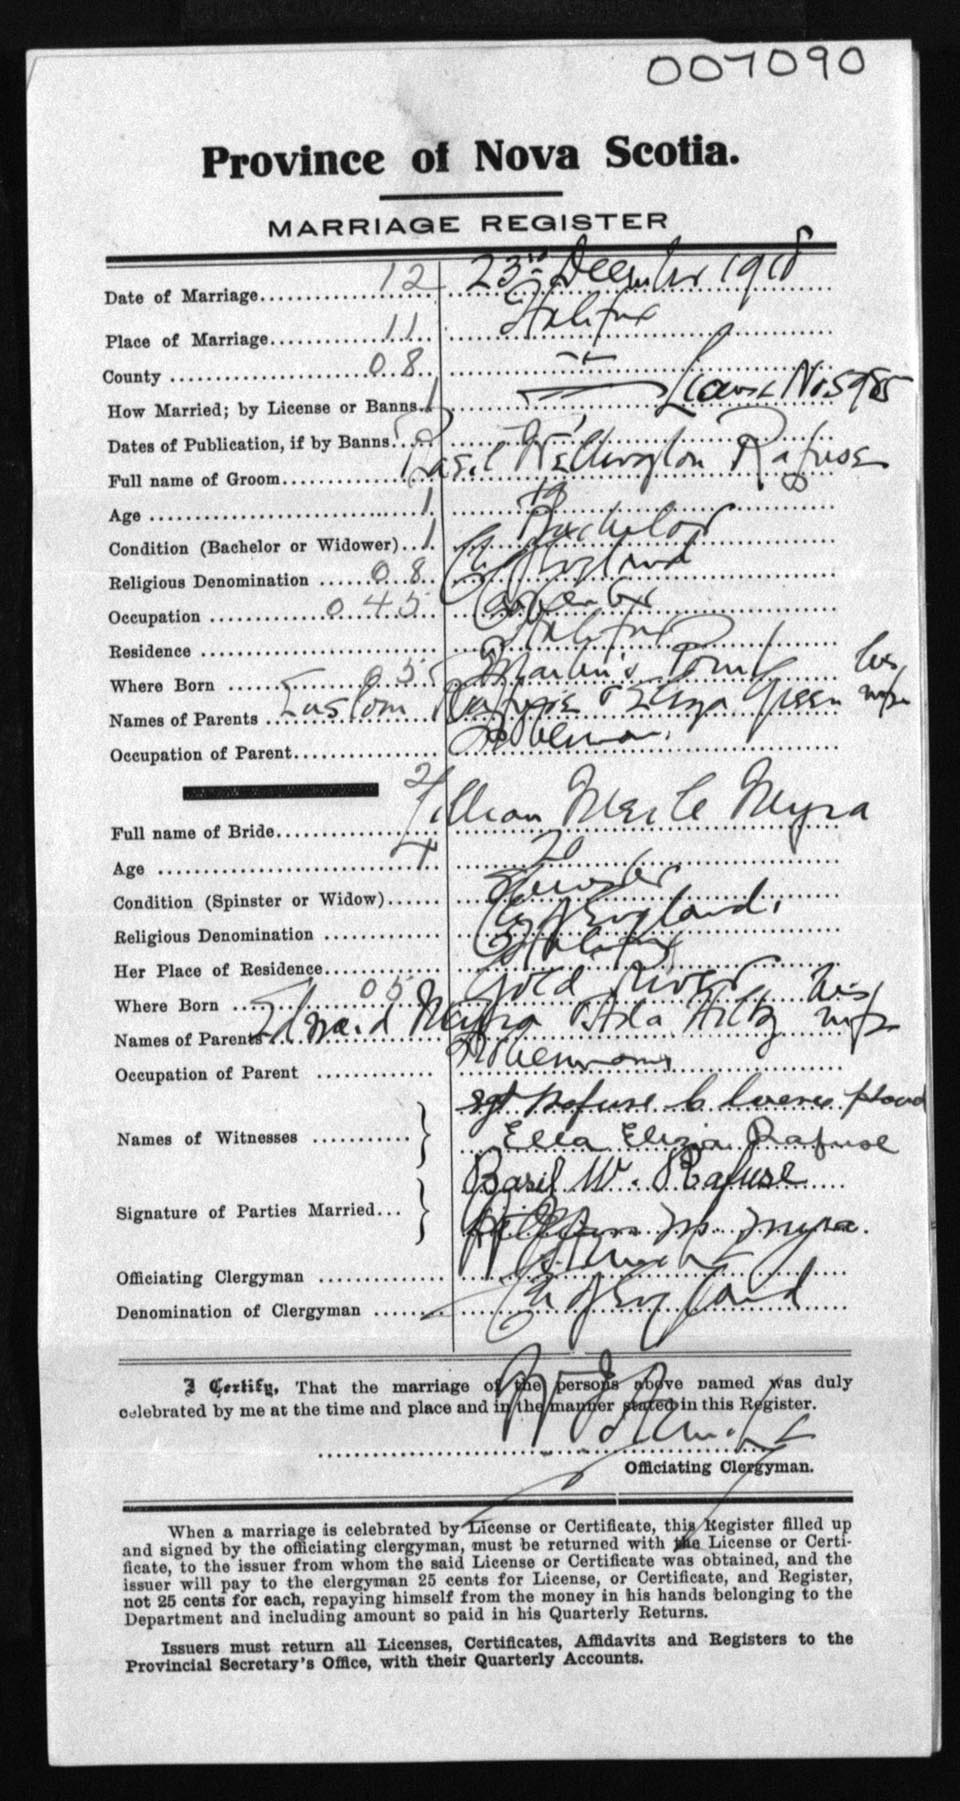 007090
Province of Nova Scotia.
MARRIAGE REGISTER
Date of Marriage 12 23rd December 1918
Place of Marriage 11 Halifax
County 08 "
How Married; by License or Banns 1 License No
Dates of Publication, if by Banns
Full name of Groom Basil Wellington Rafuse
Age 1 19
Condition (Bachelor or Widower) 1 Bachelor
Religious Denomination 08 Ch of England
Occupation 045 Carpenter
Residence Halifax
Where Born 05 Martin's Point
Names of Parents Rafuse & Eliza Green his wife
Occupation of Parent Fisherman.
Full name of Bride Lillian Merle Myra
Age 4 20
Condition (Spinster or Widow) Spinster
Religious Denomination Ch of England.
Her Place of Residence Halifax
Where Born 05 Gold River
Names of Parents Edward Myra & Ada Hiltz his wife
Occupation of Parent Fisherman
Names of Witnesses Sgt Rafuse
Ella Eliza Rafuse
Signature of Parties Married Basil W. Rafuse
Lillian M. Myra.
Officiating Clergyman
Denomination of Clergyman Ch of England
I Certify, That the marriage of the persons above named was duly
celebrated by me at the time and place and in the manner stated in this Register.
Officiating Clergyman.
When a marriage is celebrated by License or Certificate, this Register filled up
and signed by the officiating clergyman, must be returned with the License or Certi-
ficate, to the issuer from whom the said License or Certificate was obtained, and the
issuer will pay to the clergyman 25 cents for License, or Certificate, and Register,
not 25 cents for each, repaying himself from the money in his hands belonging to the
Department and including amount so paid in his Quarterly Returns.
Issuers must return all Licenses, Certificates, Affidavits and Registers to the
Provincial Secretary's Office, with their Quarterly Accounts.